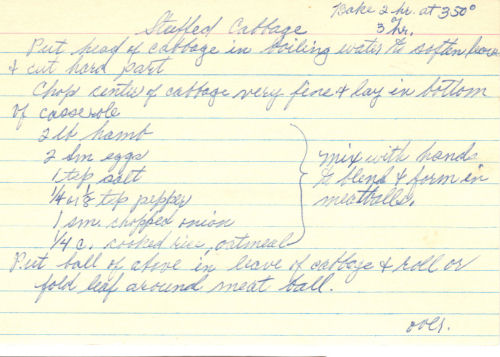 Bake 2 hr. at 350°
3 hr.
Stuffed Cabbage
Put head of cabbage in boiling water to soften leave
& cut hard part
Chop center of cabbage very fine & lay in bottom
of casserole
2 lb hamb
2 sm eggs
1 tsp salt
1/4 or 1/8 tsp pepper
1 sm. chopped onion
1/4 c. cooked rice, oatmeal
mix with hands
to blend & form in
meatballs.
Put ball of above in leave of cabbage & roll or
fold leaf around meat ball.
over.